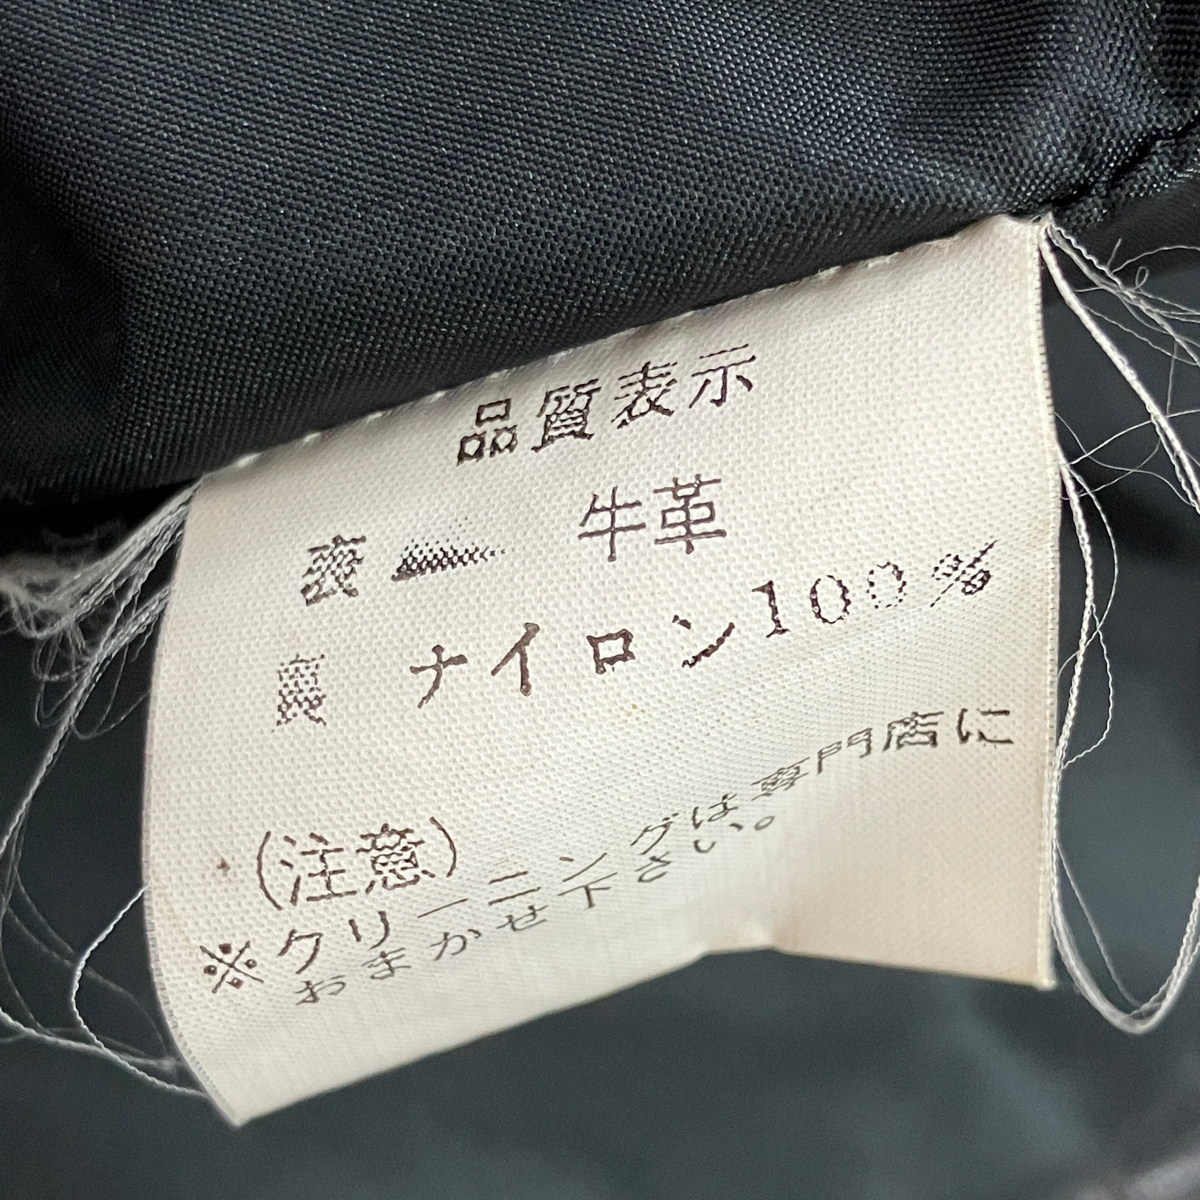 品質表示
表 ー 牛革
裏 ナイロン100%
(注意)
※クリーニングは専門店に
おまかせ下さい。